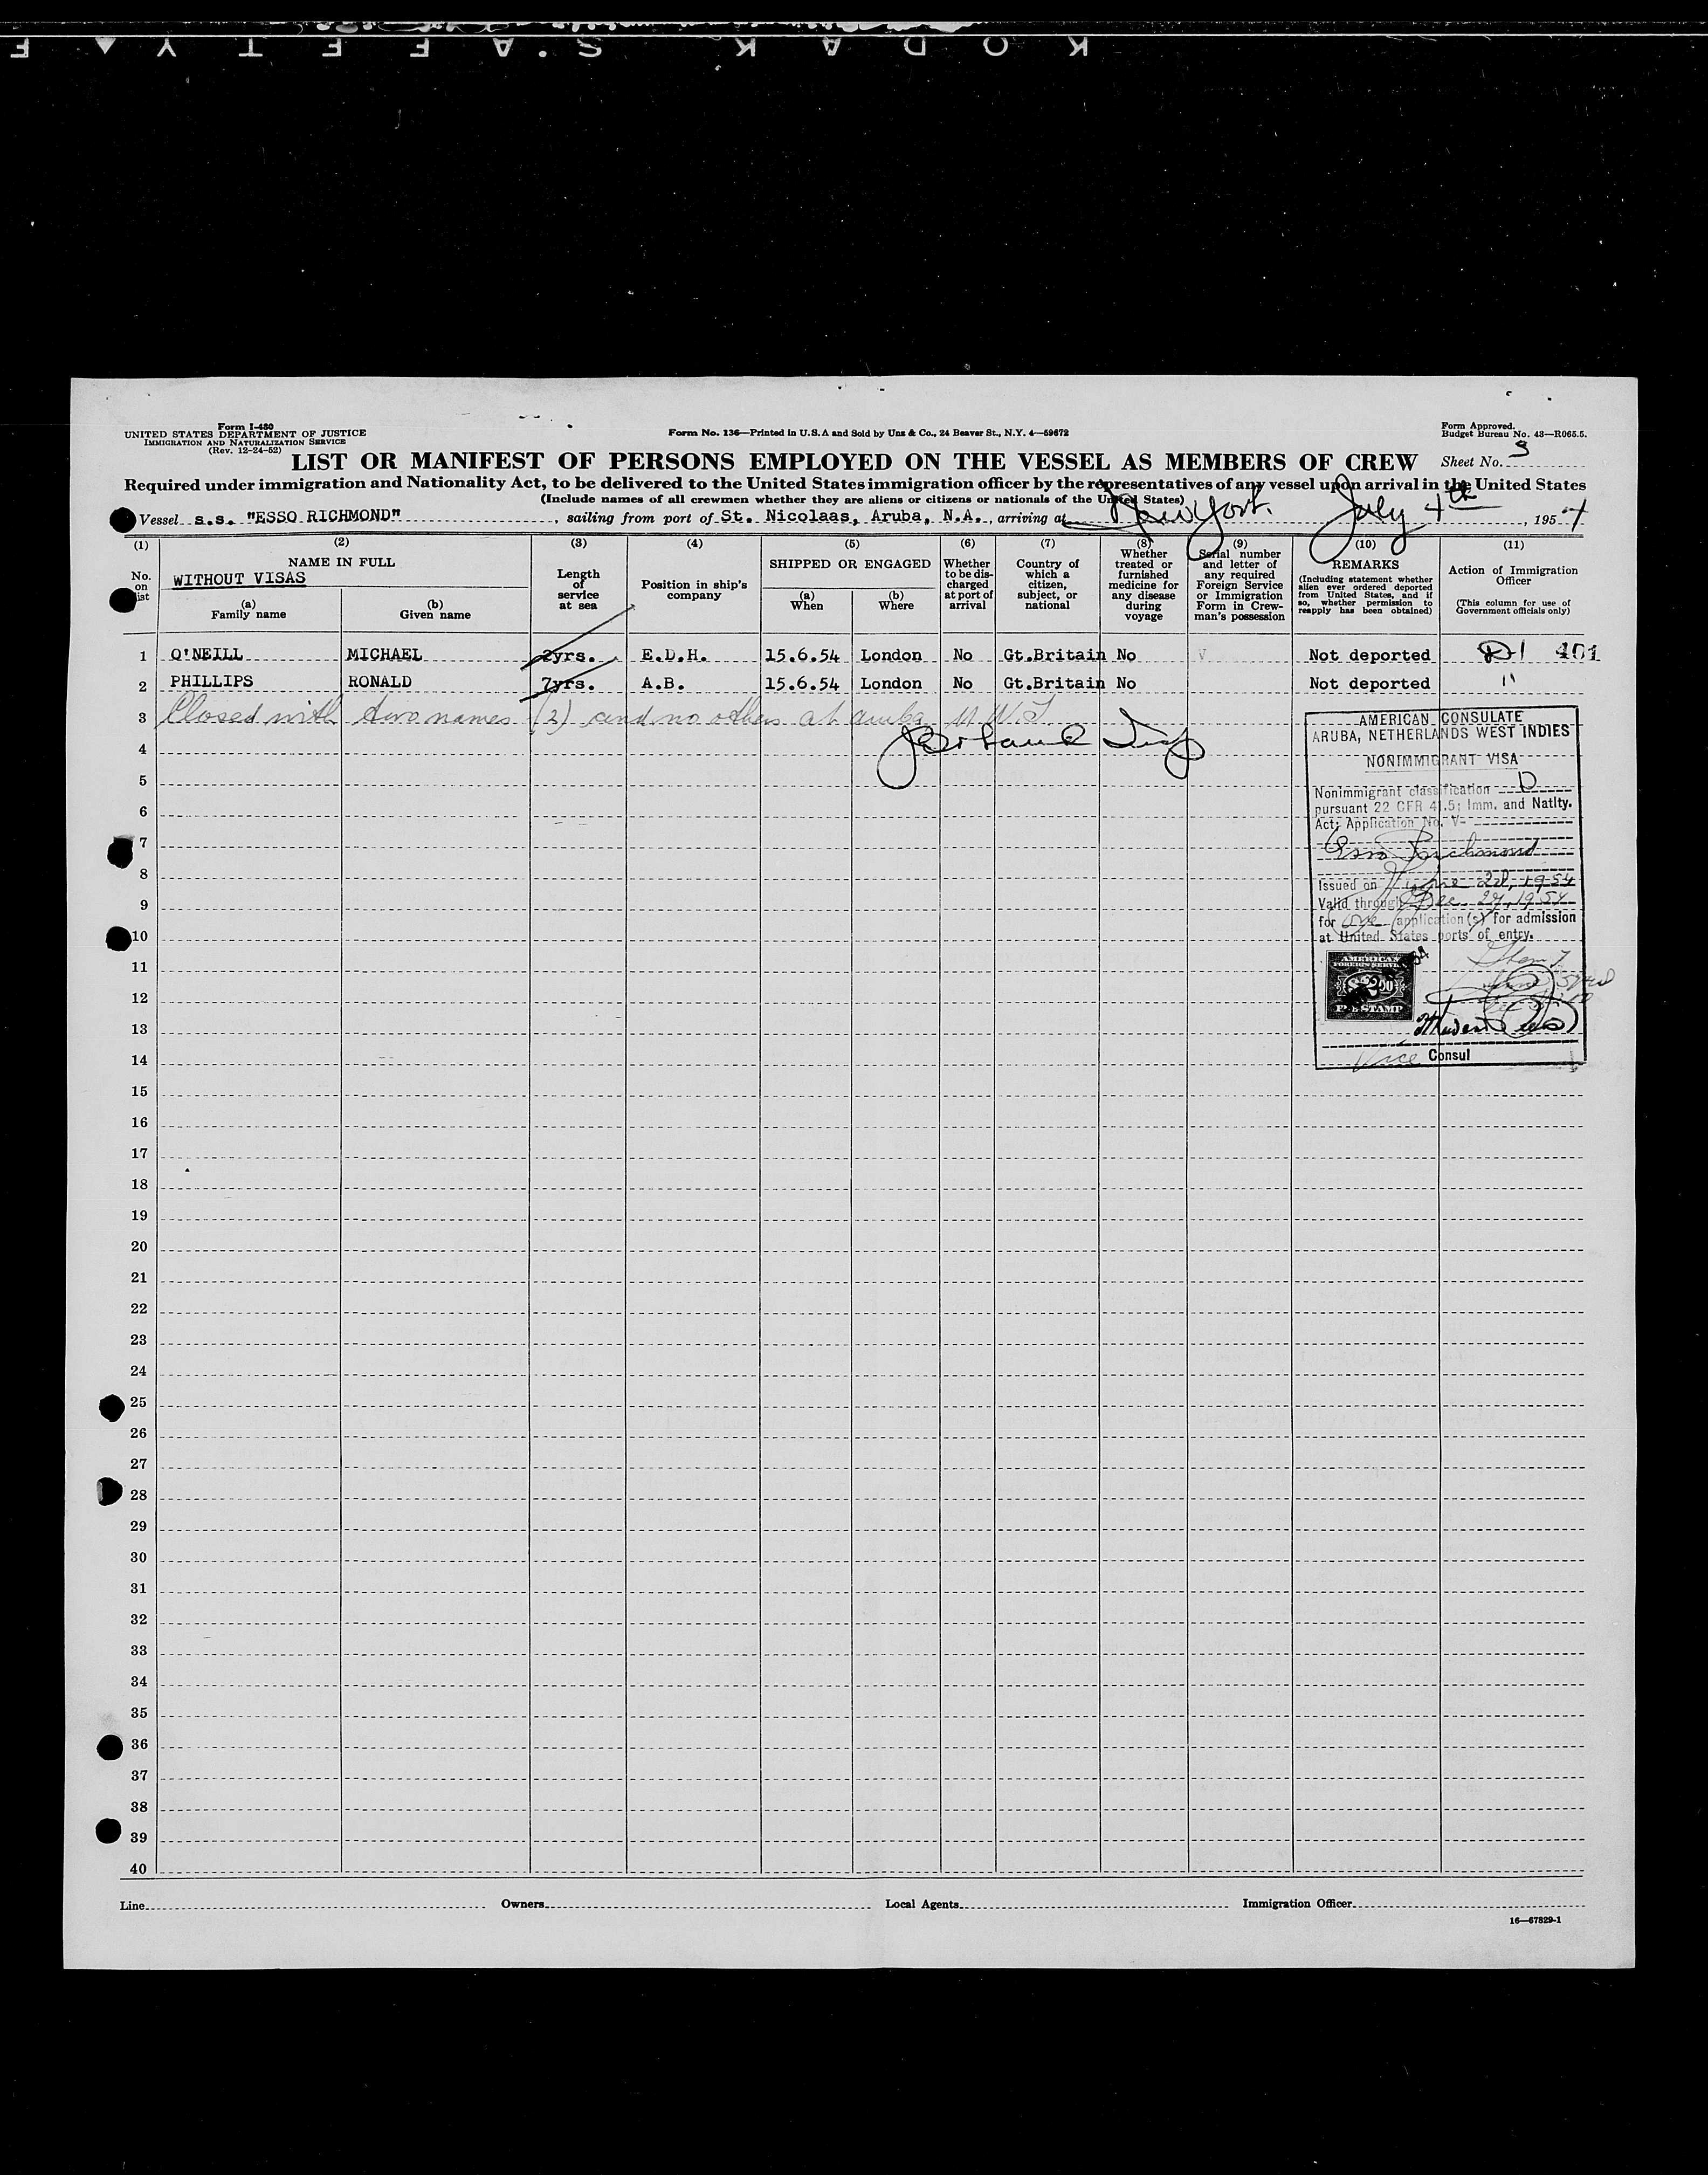 KODAK S.A F E T Y F
Form I-480
UNITED STATES DEPARTMENT OF JUSTICE
IMMIGRATION AND NATURALIZATION SERVICE
(Rev. 12-24-52)
Form No. 136—Printed in U.S.A and Sold by Unz & Co., 24 Beaver St., N.Y. 4—59672
Form Approved.
Budget Bureau No. 43—R065.5.
LIST OR MANIFEST OF PERSONS EMPLOYED ON THE VESSEL AS MEMBERS OF CREW
Sheet No. 3
Required under immigration and Nationality Act, to be delivered to the United States immigration officer by the representatives of any vessel upon arrival in the United States
(Include names of all crewmen whether they are aliens or citizens or nationals of the United States)
Vessel s.s. "ESSO RICHMOND", sailing from port of St. Nicolaas, Aruba, N.A., arriving at New York. July 4th, 1954
(1) (2) (3) (4) (5) (6) (7) (8) (9) (10) (11)
No. on list
NAME IN FULL
WITHOUT VISAS
(a) Family name
(b) Given name
Length of service at sea
Position in ship's company
SHIPPED OR ENGAGED
(a) When
(b) Where
Whether to be discharged at port of arrival
Country of which a citizen, subject, or national
Whether treated or furnished medicine for any disease during voyage
Serial number and letter of any required Foreign Service or Immigration Form in Crewman's possession
REMARKS
(Including statement whether alien ever ordered deported from United States, and if so, whether permission to reapply has been obtained)
Action of Immigration Officer
(This column for use of Government officials only)
1 O'NEILL MICHAEL 2yrs. E.D.H. 15.6.54 London No Gt.Britain No V Not deported D1 401
2 PHILLIPS RONALD 7yrs. A.B. 15.6.54 London No Gt.Britain No Not deported "
3 Closed with two names (2) and no others at Aruba N W I
4
5
6
7
8
9
10
11
12
13
14
15
16
17
18
19
20
21
22
23
24
25
26
27
28
29
30
31
32
33
34
35
36
37
38
39
40
AMERICAN CONSULATE
ARUBA, NETHERLANDS WEST INDIES
NONIMMIGRANT VISA
Nonimmigrant classification D
pursuant 22 CFR 41.5; Imm. and Natlty.
Act; Application No. V-
Esso Richmond
Issued on June 28, 1954
Valid through Dec. 27, 1954
for one application(s) for admission
at United States ports of entry.
AMERICAN
FOREIGN SERVICE
$2.00
FEE STAMP
Vice Consul
Line
Owners
Local Agents
Immigration Officer
16—67829-1